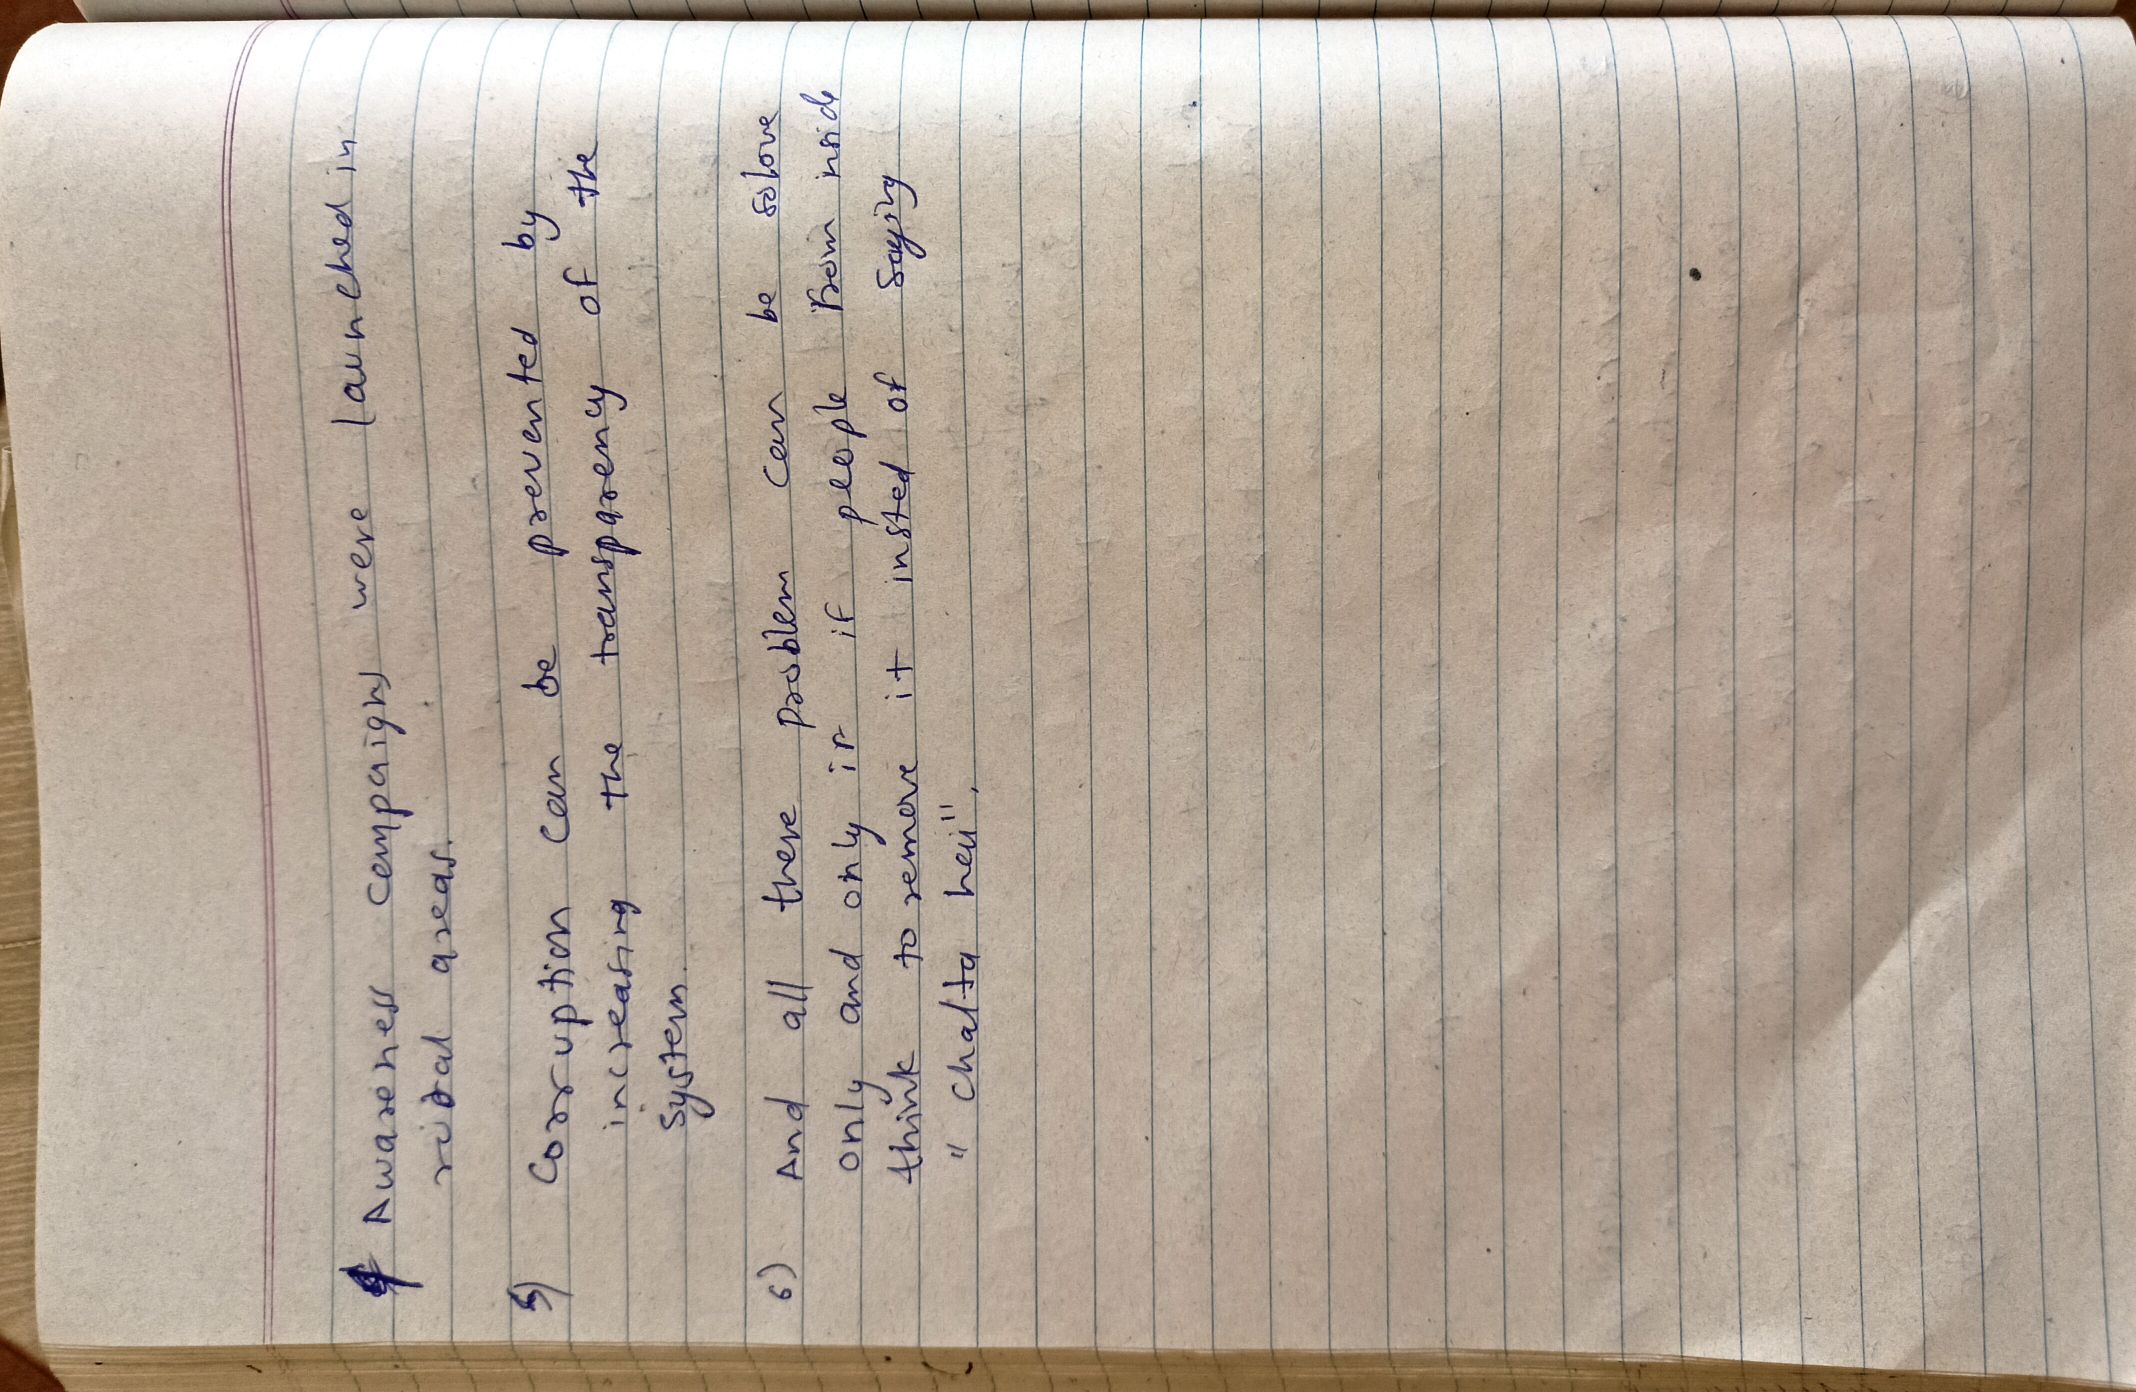 Awareness campaigns were launched in
rural areas.
5) Corruption can be prevented by
increasing the transparency of the
system.
6) And all these problem can be solove
only and only if if people from inside
think to remove it insted of saying
"chalta hai",